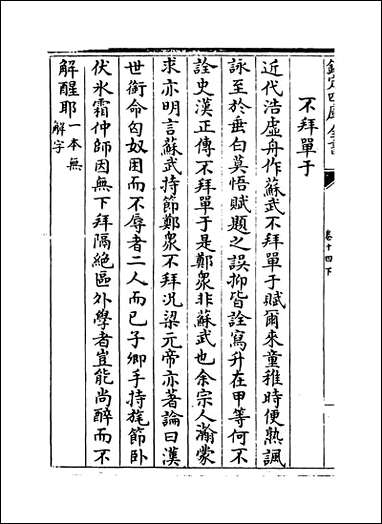 欽定四庫全書
卷十四下
不拜單于
近代浩虛舟作蘇武不拜單于賦爾來童稚時便熟諷
詠至於垂白莫悟賦題之誤抑皆詮寫升在甲等何不
詮史漢正傳不拜單于是鄭衆非蘇武也余宗人瀚蒙
求亦明言蘇武持節鄭衆不拜況梁元帝亦著論曰漢
世銜命匈奴困而不辱者二人而已子卿手持旄節卧
伏氷霜仲師固無下拜隔絶區外學者豈能尚醉而不
解醒耶一本無
解字